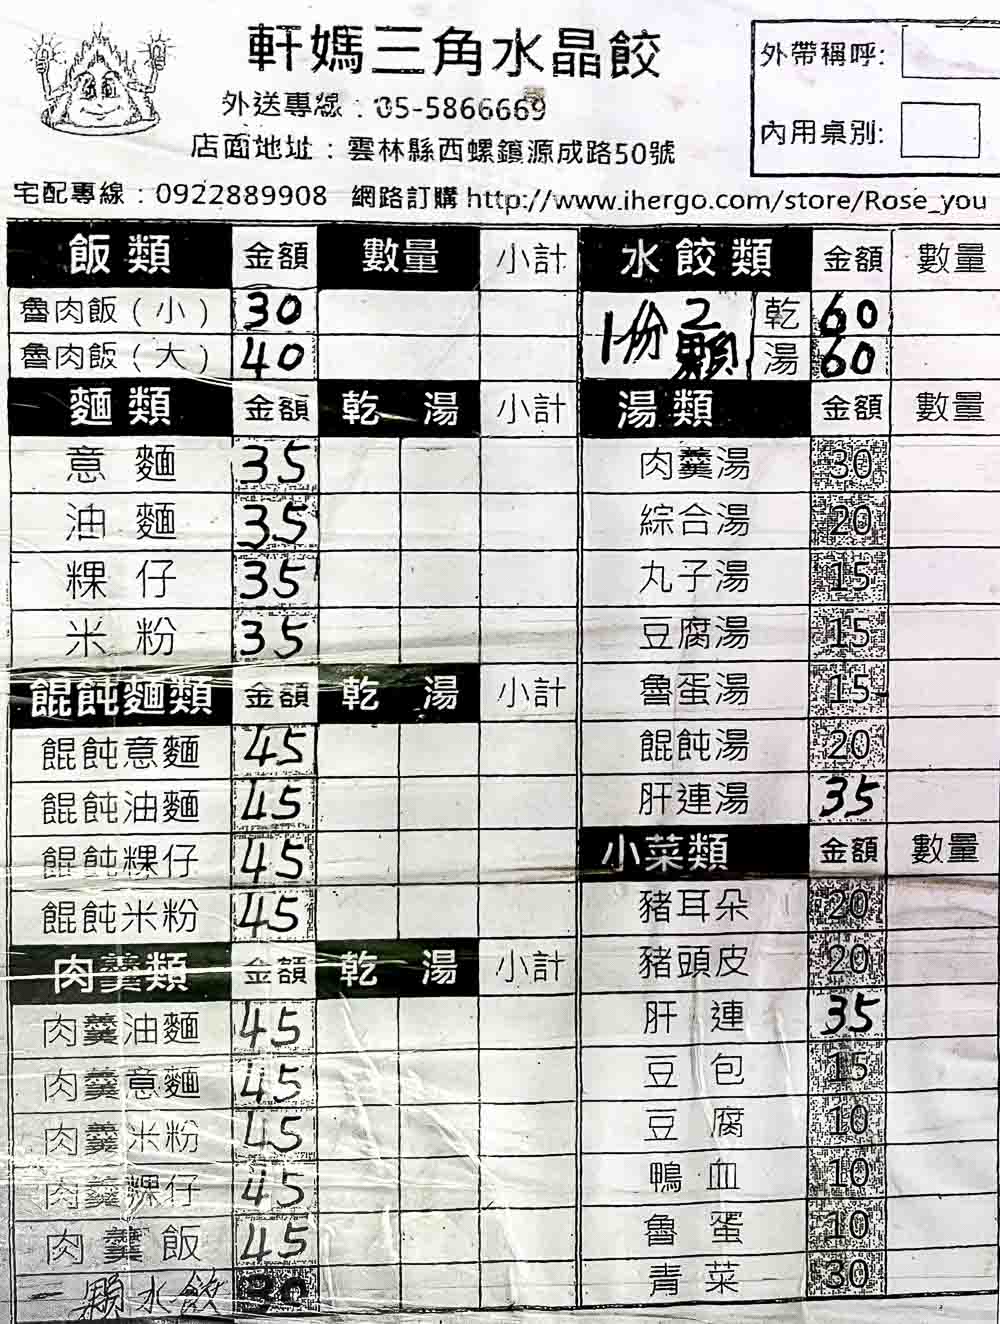 軒媽三角水晶餃
外送專線：05-5866669
店面地址：雲林縣西螺鎮源成路50號
宅配專線：0922889908 網路訂購 http://www.ihergo.com/store/Rose_you
外帶稱呼:
內用桌別:
飯類 金額 數量 小計
魯肉飯（小） 30
魯肉飯（大） 40
麵類 金額 乾 湯 小計
意麵 35
油麵 35
粿仔 35
米粉 35
餛飩麵類 金額 乾 湯 小計
餛飩意麵 45
餛飩油麵 45
餛飩粿仔 45
餛飩米粉 45
肉羹類 金額 乾 湯 小計
肉羹油麵 45
肉羹意麵 45
肉羹米粉 45
肉羹粿仔 45
肉羹飯 45
一顆水餃 30
水餃類 金額 數量
1份2顆 乾 60
湯 60
湯類 金額 數量
肉羹湯 30
綜合湯 20
丸子湯 15
豆腐湯 15
魯蛋湯 15
餛飩湯 20
肝連湯 35
小菜類 金額 數量
豬耳朵 20
豬頭皮 20
肝連 35
豆包 15
豆腐 10
鴨血 10
魯蛋 10
青菜 30